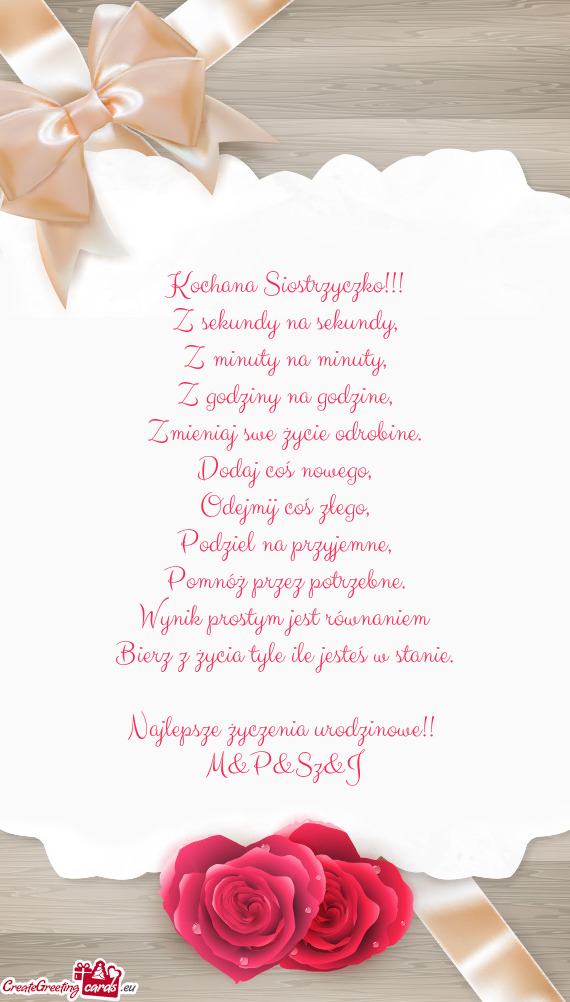 Kochana Siostrzyczko!!!
Z sekundy na sekundy,
Z minuty na minuty,
Z godziny na godzine,
Zmieniaj swe życie odrobine.
Dodaj coś nowego,
Odejmij coś złego,
Podziel na przyjemne,
Pomnóż przez potrzebne.
Wynik prostym jest równaniem
Bierz z życia tyle ile jesteś w stanie.
Najlepsze życzenia urodzinowe!!
M&P&Sz&J
CreateGreetingcards.eu